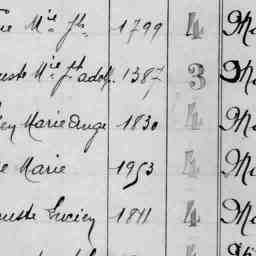 ie Mie Jh 1799 4 Ma
uste Mie Jh adolf. 1387 3 Ma
ey Marie Ange 1830 4 Ma
e Marie 1953 4 Ma
uste Lucien 1811 4 Ma